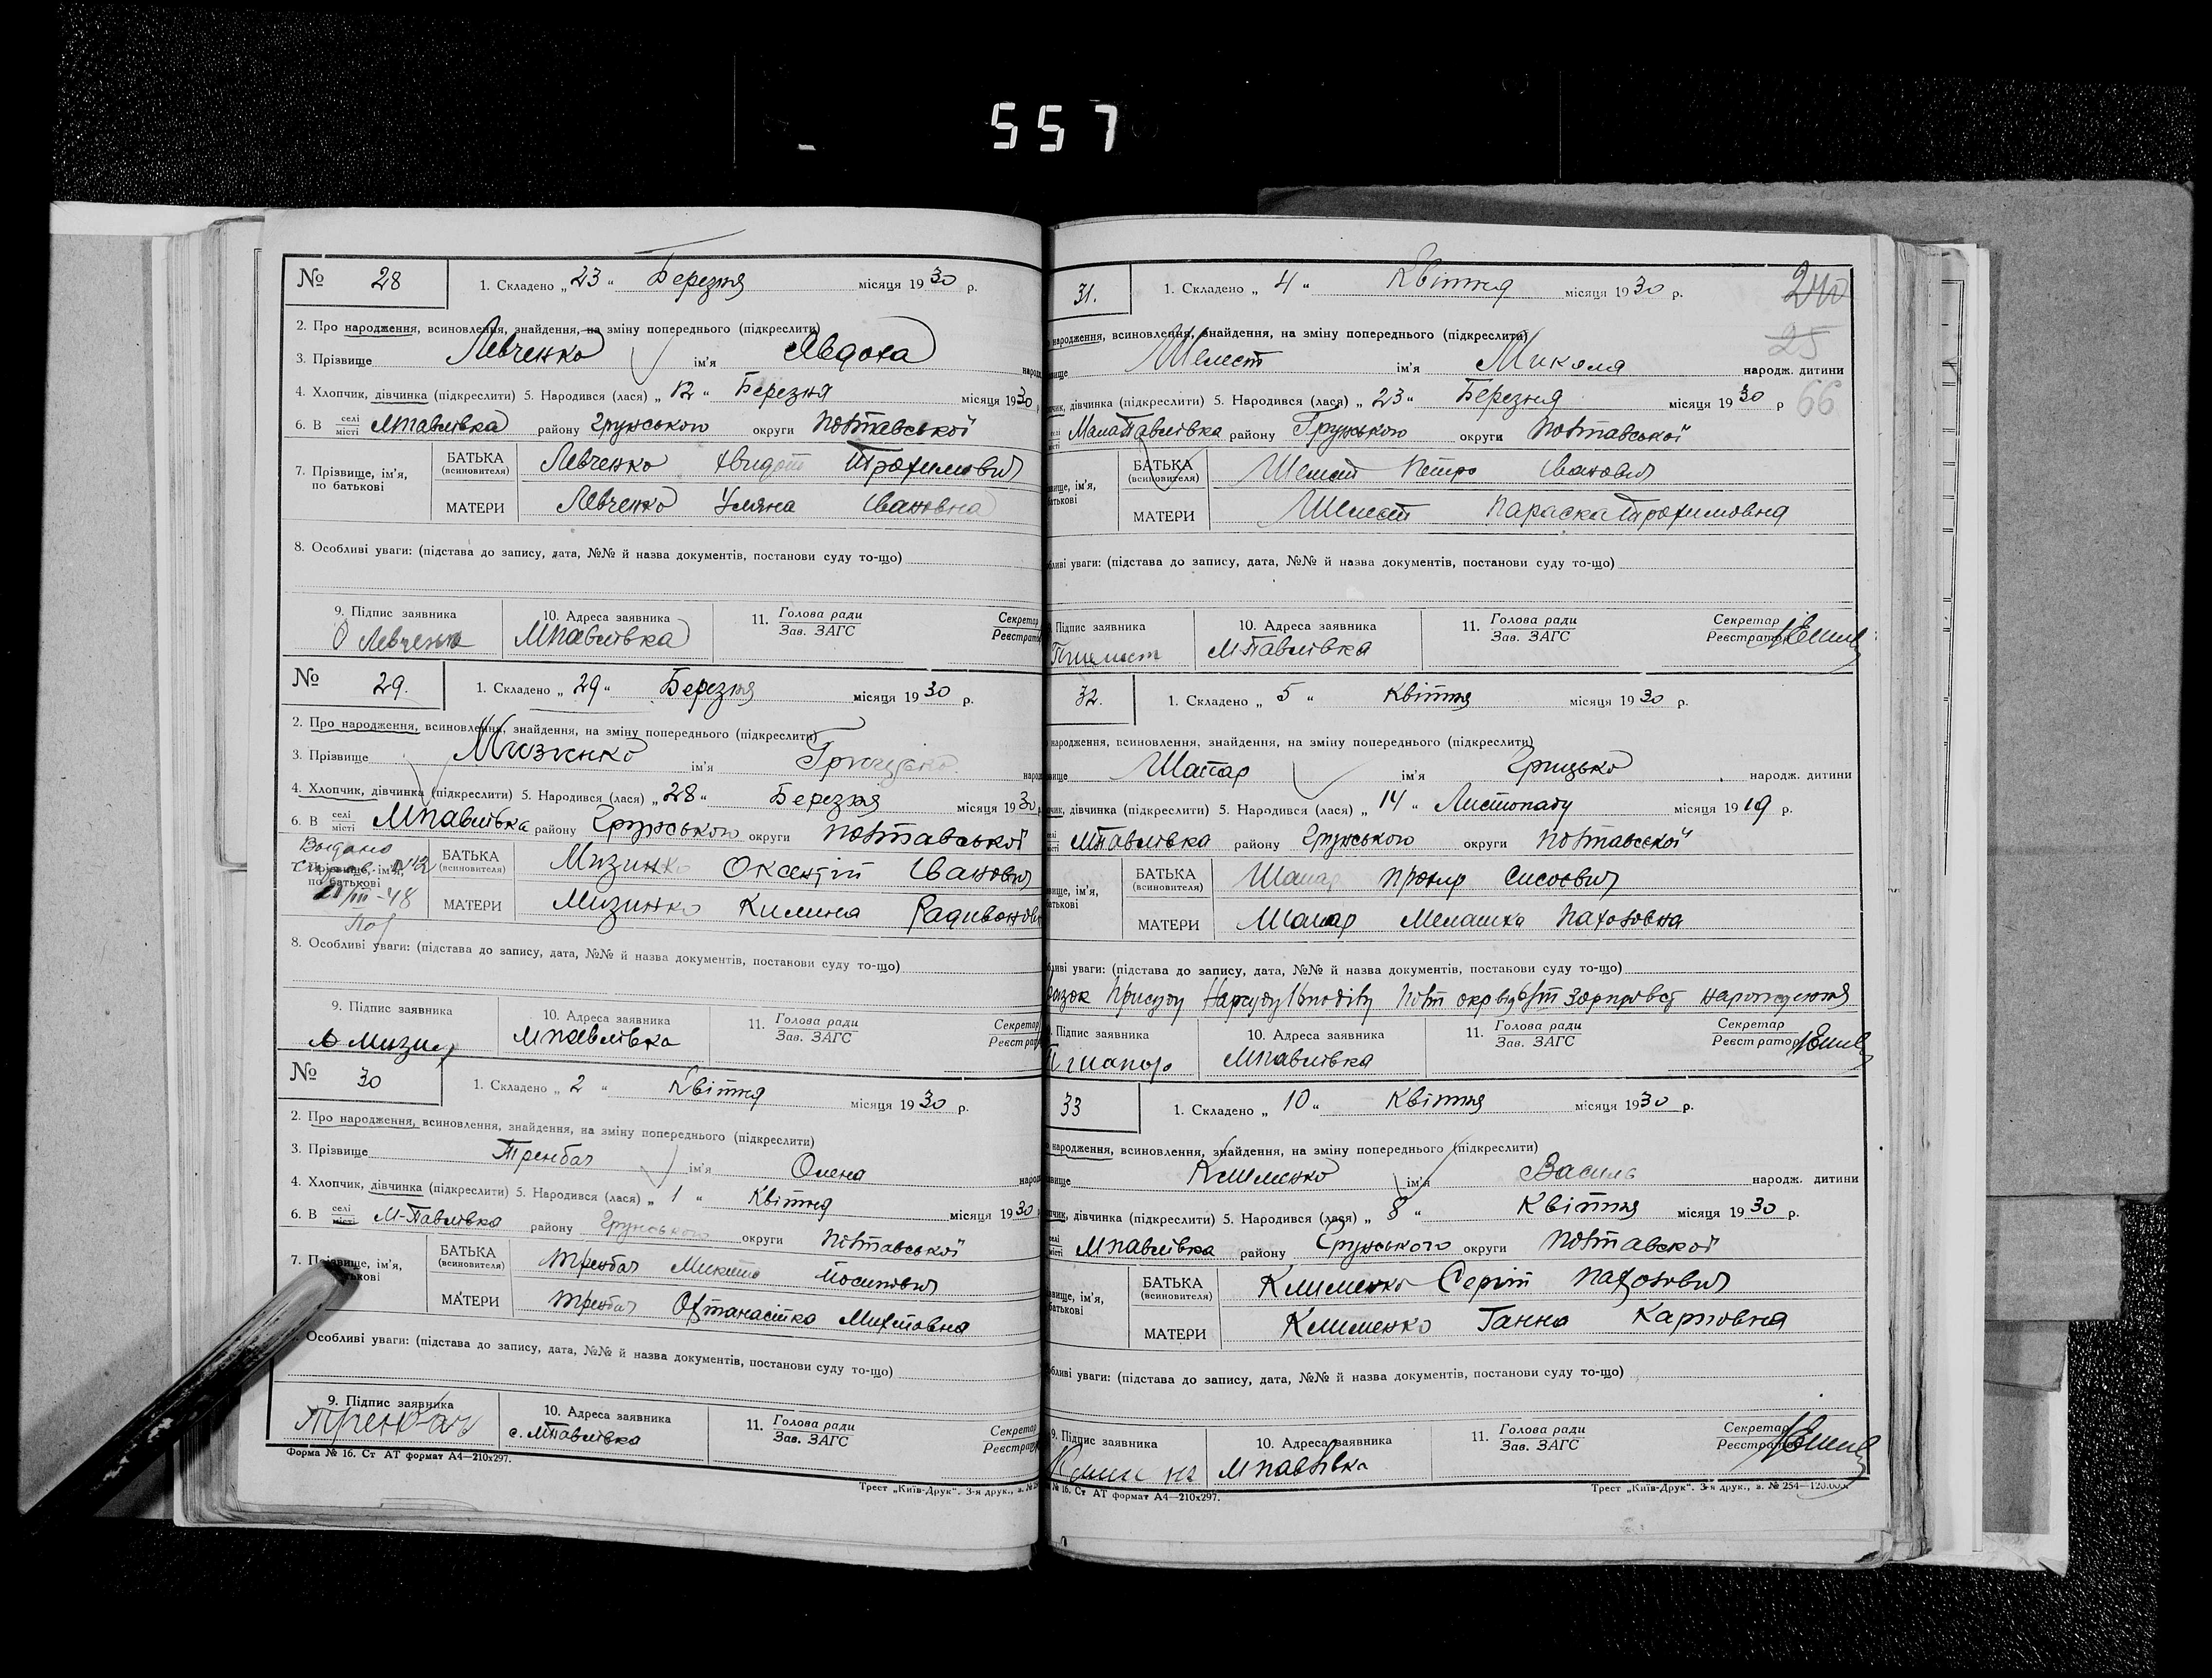 557
№ 28 1. Складено „ 23 “ Березня місяця 1930 р.
2. Про народження, всиновлення, знайдення, на зміну попереднього (підкреслити)
3. Прізвище Левченко ім'я Явдоха народ
4. Хлопчик, дівчинка (підкреслити) 5. Народився (лася) „ 12 “ Березня місяця 1930
6. В селі місті МПавлівка району Грунського округи Полтавської
7. Прізвище, ім'я, по батькові
БАТЬКА (всиновителя) Левченко Хвидот Трохимович
МАТЕРИ Левченко Уляна Івановна
8. Особливі уваги: (підстава до запису, дата, №№ й назва документів, постанови суду то-що)
9. Підпис заявника О Левченко
10. Адреса заявника МПавлівка
11. Голова ради Зав. ЗАГС
Секретар Реєстратор
№ 29. 1. Складено „ 29 “ Березня місяця 1930 р.
2. Про народження, всиновлення, знайдення, на зміну попереднього (підкреслити)
3. Прізвище Мизненко ім'я Грицько народ
4. Хлопчик, дівчинка (підкреслити) 5. Народився (лася) „ 28 “ Березня місяця 1930
6. В селі місті МПавлівка району Грунського округи Полтавської
Видано
7. Прізвище, ім'я, по батькові
21/III-48
БАТЬКА (всиновителя) Мизинко Оксентій Іванович
МАТЕРИ Мизинко Килина Радивоновн
8. Особливі уваги: (підстава до запису, дата, №№ й назва документів, постанови суду то-що)
9. Підпис заявника
10. Адреса заявника МПавлівка
11. Голова ради Зав. ЗАГС
Секретар Реєстрат
№ 30 1. Складено „ 2 “ Квітня місяця 1930 р.
2. Про народження, всиновлення, знайдення, на зміну попереднього (підкреслити)
3. Прізвище Тренбач ім'я Олена народ
4. Хлопчик, дівчинка (підкреслити) 5. Народився (лася) „ 1 “ Квітня місяця 1930
6. В селі місті М-Павлівка району Грунського округи Полтавської
7. Прізвище, ім'я, батькові
БАТЬКА (всиновителя) Тренбач Микита Йосипович
МАТЕРИ Тренбач Махтовна
Особливі уваги: (підстава до запису, дата, №№ й назва документів, постанови суду то-що)
9. Підпис заявника Тренбач
10. Адреса заявника с. МПавлівка
11. Голова ради Зав. ЗАГС
Секретар Реєстрат
Форма № 16. Ст АТ формат А4—210х297.
Трест „Київ-Друк“. 3-я друк., з. № 2
31. 1. Складено „ 4 “ Квітня місяця 1930 р.
240
народження, всиновлення, знайдення, на зміну попереднього (підкреслити)
25
вище Шелест ім'я Микола народж. дитини
пчик, дівчинка (підкреслити) 5. Народився (лася) „ 23 “ Березня місяця 1930 р
66
селі місті МалаПавлівка району Грунського округи Полтавської
вище, ім'я, батькові
БАТЬКА (всиновителя) Шелест Петро Іванович
МАТЕРИ Шелест Параска Трохимовна
бливі уваги: (підстава до запису, дата, №№ й назва документів, постанови суду то-що)
Підпис заявника Пшелест
10. Адреса заявника МПавлівка
11. Голова ради Зав. ЗАГС
Секретар Реєстратор
32. 1. Складено „ 5 “ Квітня місяця 1930 р.
народження, всиновлення, знайдення, на зміну попереднього (підкреслити)
вище Шапар ім'я Грицько народж. дитини
пчик, дівчинка (підкреслити) 5. Народився (лася) „ 14 “ Листопаду місяця 1919 р.
селі місті МПавлівка району Грунського округи Полтавської
вище, ім'я, батькові
БАТЬКА (всиновителя) Шапар Прокир Сисоєвич
МАТЕРИ Шапар Мелашка Пахоновна
бливі уваги: (підстава до запису, дата, №№ й назва документів, постанови суду то-що)
Присуду Нарсуду
Підпис заявника шапор
10. Адреса заявника МПавлівка
11. Голова ради Зав. ЗАГС
Секретар Реєстратор
33 1. Складено „ 10 “ Квітня місяця 1930 р.
народження, всиновлення, знайдення, на зміну попереднього (підкреслити)
вище Клименко ім'я Василь народж. дитини
пчик, дівчинка (підкреслити) 5. Народився (лася) „ 8 “ Квітня місяця 1930 р.
селі місті МПавлівка району Грунського округи Полтавської
вище, ім'я, батькові
БАТЬКА (всиновителя) Клименко Сергій Пахонович
МАТЕРИ Клименко Ганна Карповна
бливі уваги: (підстава до запису, дата, №№ й назва документів, постанови суду то-що)
9. Підпис заявника
10. Адреса заявника МПавлівка
11. Голова ради Зав. ЗАГС
Секретар Реєстратор
№ 16. Ст АТ формат А4—210х297.
Трест „Київ-Друк“. 3-я друк., з. № 254—120.000.